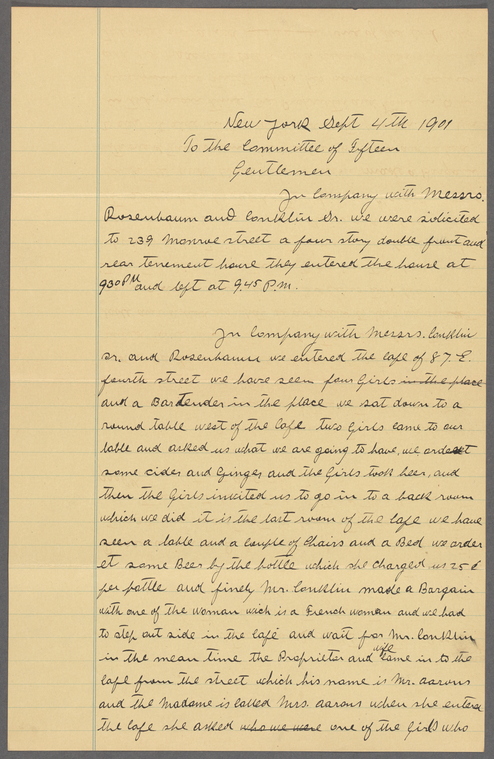 New York Sept 4th 1901
To the Committee of Fifteen
Gentlemen
In Company with Messrs.
Rosenbaum and Conklin Sr. we were solicited
to 239 Monroe street a four story double front and
rear tenement house they entered the house at
930 PM and left at 9.45 P.M.
In Company with Messrs. Conklin
Sr. and Rosenbaum we entered the Cafe of 87. E.
fourth street we have seen four Girls in the place
and a Bartender in the place we sat down to a
round table west of the Cafe two Girls came to our
table and asked us what we are going to have, we orderet
some cider and Ginger and the Girls took beer, and
then the Girls invited us to go in to a back room
which we did it is the last room of the Cafe we have
seen a table and a couple of Chairs and a Bed we order
et some Beer by the bottle which she charged us 25 ¢
per bottle and finely Mr. Conklin made a Bargain
with one of the woman wich is a French woman and we had
to step out side in the café and wait for Mr. Conklin
in the mean time the Proprietor and wife came in to the
Cafe from the street which his name is Mr. Aarons
and the Madame is called Mrs. Aarons when she entered
the Cafe she asked who we were one of the Girls who